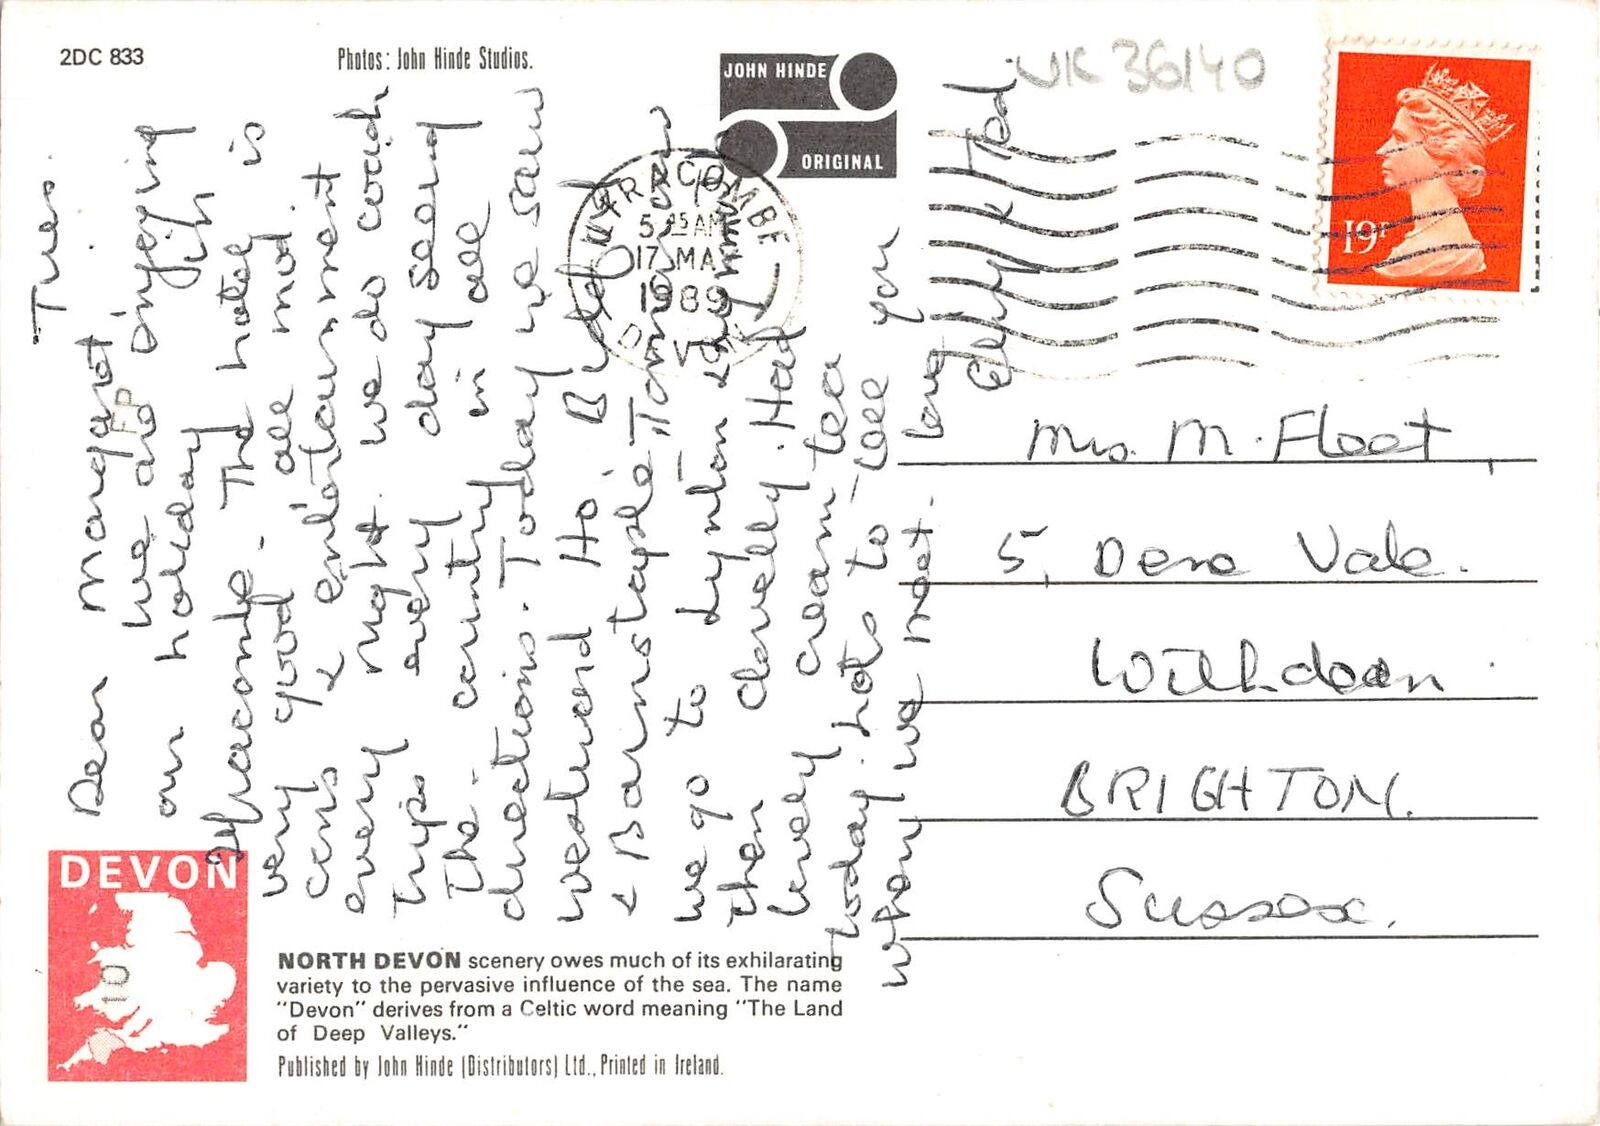 2DC 833
Photos: John Hinde Studios.
JOHN HINDE
ORIGINAL
UK 36140
19P
ILFRACOMBE
5 15 AM
17 MA
1989
DEVON
FP
Tues.
Dear Margaret
We are enjoying
our holiday in
Ilfracombe - The hotel is
very good all mod.
cons & entertainment
every night. We do coach
trips every day seeing
the country in all
directions. Today we saw
Westward Ho, Bude
& Barnstaple, Tomorrow
we go to Lynton & Lynmouth
then Clovelly. Had
lovely cream tea
today. Lots to tell you
when we meet.
Love
& Ted.
Mrs. M. Fleet,
5, Dene Vale.
Withdean
BRIGHTON.
Sussex.
DEVON
10
NORTH DEVON scenery owes much of its exhilarating
variety to the pervasive influence of the sea. The name
"Devon" derives from a Celtic word meaning "The Land
of Deep Valleys."
Published by John Hinde (Distributors) Ltd., Printed in Ireland.